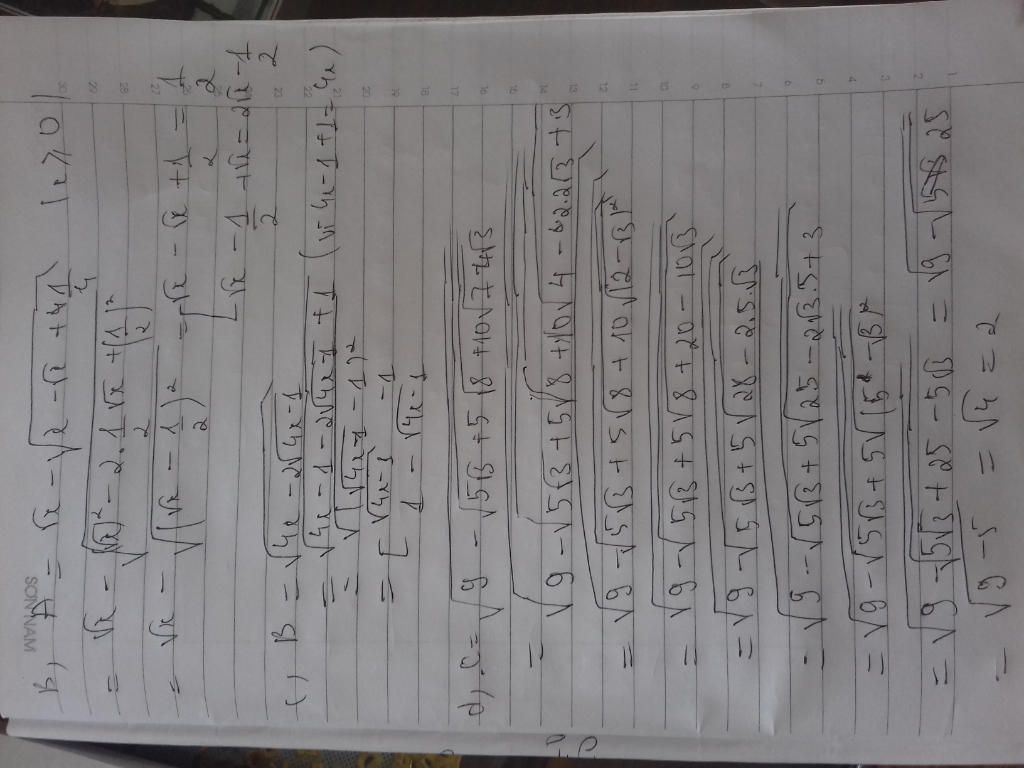 SONNAM
B) A = √x - √(x - √x + 1/4) (x ≥ 0)
= √x - √((√x)² - 2.1/2√x + (1/2)²)
= √x - √((√x - 1/2)²) = [√x - √x + 1/2 = 1/2
[√x - 1/2 + √x = 2√x - 1/2
c) B = √(4x - 2√(4x-1))
= √(4x - 1 - 2√(4x-1) + 1) (√4x - 1 + 1 = 4x)
= √((√(4x-1) - 1)²)
= [√(4x-1) - 1
[1 - √(4x-1)
d) C = √(9 - √(5√3 + 5√(8 + 10√(7 - 4√3))))
= √(9 - √(5√3 + 5√(8 + 10√(4 - 2.2√3 + 3))))
= √(9 - √(5√3 + 5√(8 + 10√((2 - √3)²))))
= √(9 - √(5√3 + 5√(8 + 20 - 10√3)))
= √(9 - √(5√3 + 5√(28 - 2.5√3)))
= √(9 - √(5√3 + 5√(25 - 2√3.5 + 3)))
= √(9 - √(5√3 + 5√((5 - √3)²)))
= √(9 - √(5√3 + 25 - 5√3)) = √(9 - √25)
= √(9 - 5) = √4 = 2